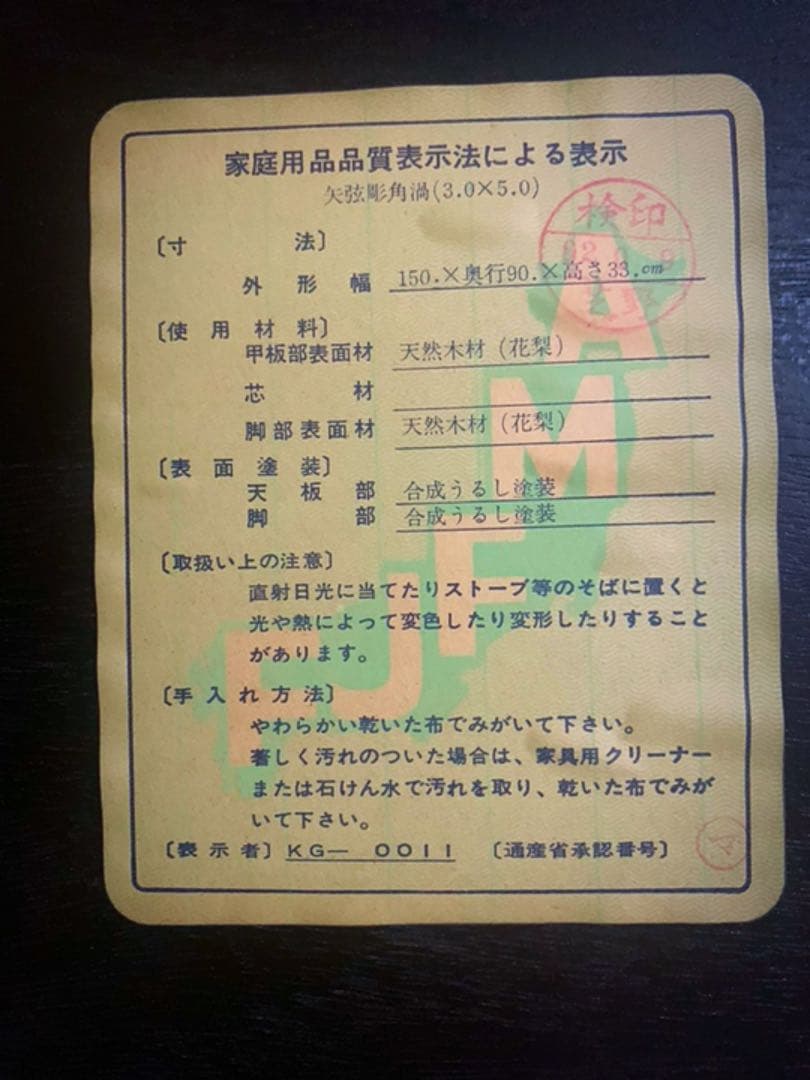 家庭用品品質表示法による表示
矢弦彫角渦(3.0×5.0)
検印
〔寸法〕
外形幅 150.×奥行90.×高さ33.cm
〔使用材料〕
甲板部表面材 天然木材（花梨）
芯材
脚部表面材 天然木材（花梨）
〔表面塗装〕
天板部 合成うるし塗装
脚部 合成うるし塗装
〔取扱い上の注意〕
直射日光に当てたりストーブ等のそばに置くと
光や熱によって変色したり変形したりすること
があります。
〔手入れ方法〕
やわらかい乾いた布でみがいて下さい。
著しく汚れのついた場合は、家具用クリーナー
または石けん水で汚れを取り、乾いた布でみが
いて下さい。
〔表示者〕KG― 0011 〔通産省承認番号〕
マ